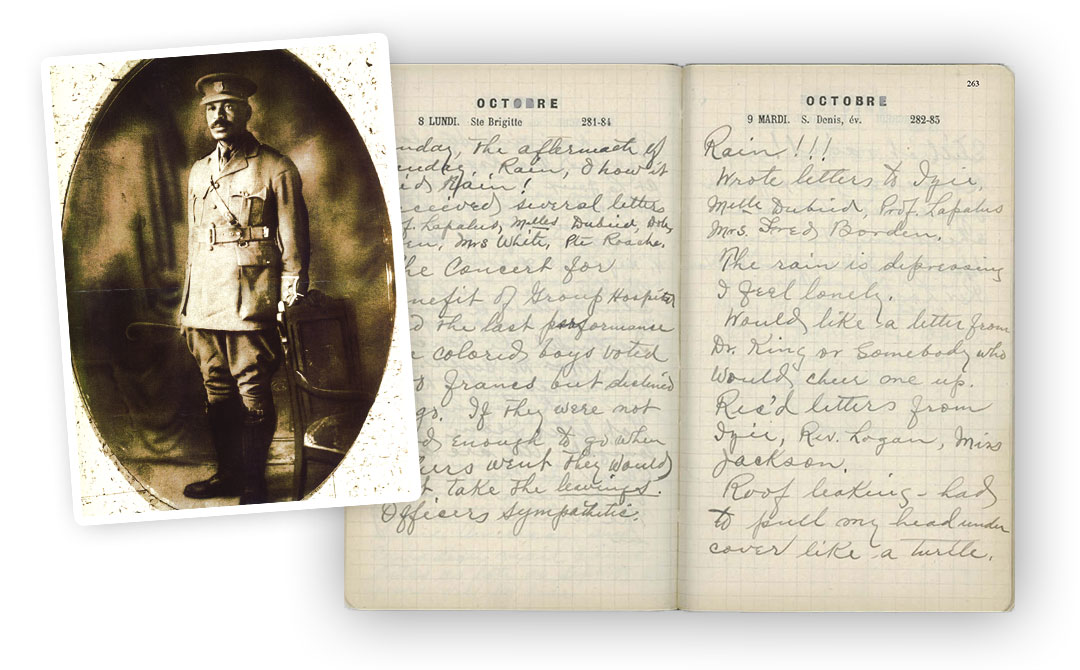 OCTOBRE
8 LUNDI. Ste Brigitte 281-84
nday, the aftermath of
unday. Rain, & how it
id Rain!
ceived several letters
f. Lapalus, Melles Dubied,
en, Mrs White, Pte Roache.
he Concert for
nefit of Group Hospital
d the last performance
colored boys voted
0 francs but declined
go. If they were not
d enough to go when
hers went they would
t take the leavings.
Officers sympathetic.
263
OCTOBRE
9 MARDI. S. Denis, év. 282-83
Rain!!!
Wrote letters to
Melle Dubied, Prof. Lapalus
Mrs. Fred Borden.
The rain is depressing
I feel lonely.
Would like a letter from
Dr. King or Somebody who
would cheer one up.
Rec'd letters from
Rev. Logan, Miss
Jackson.
Roof leaking - had
to pull my head under
cover like a turtle.